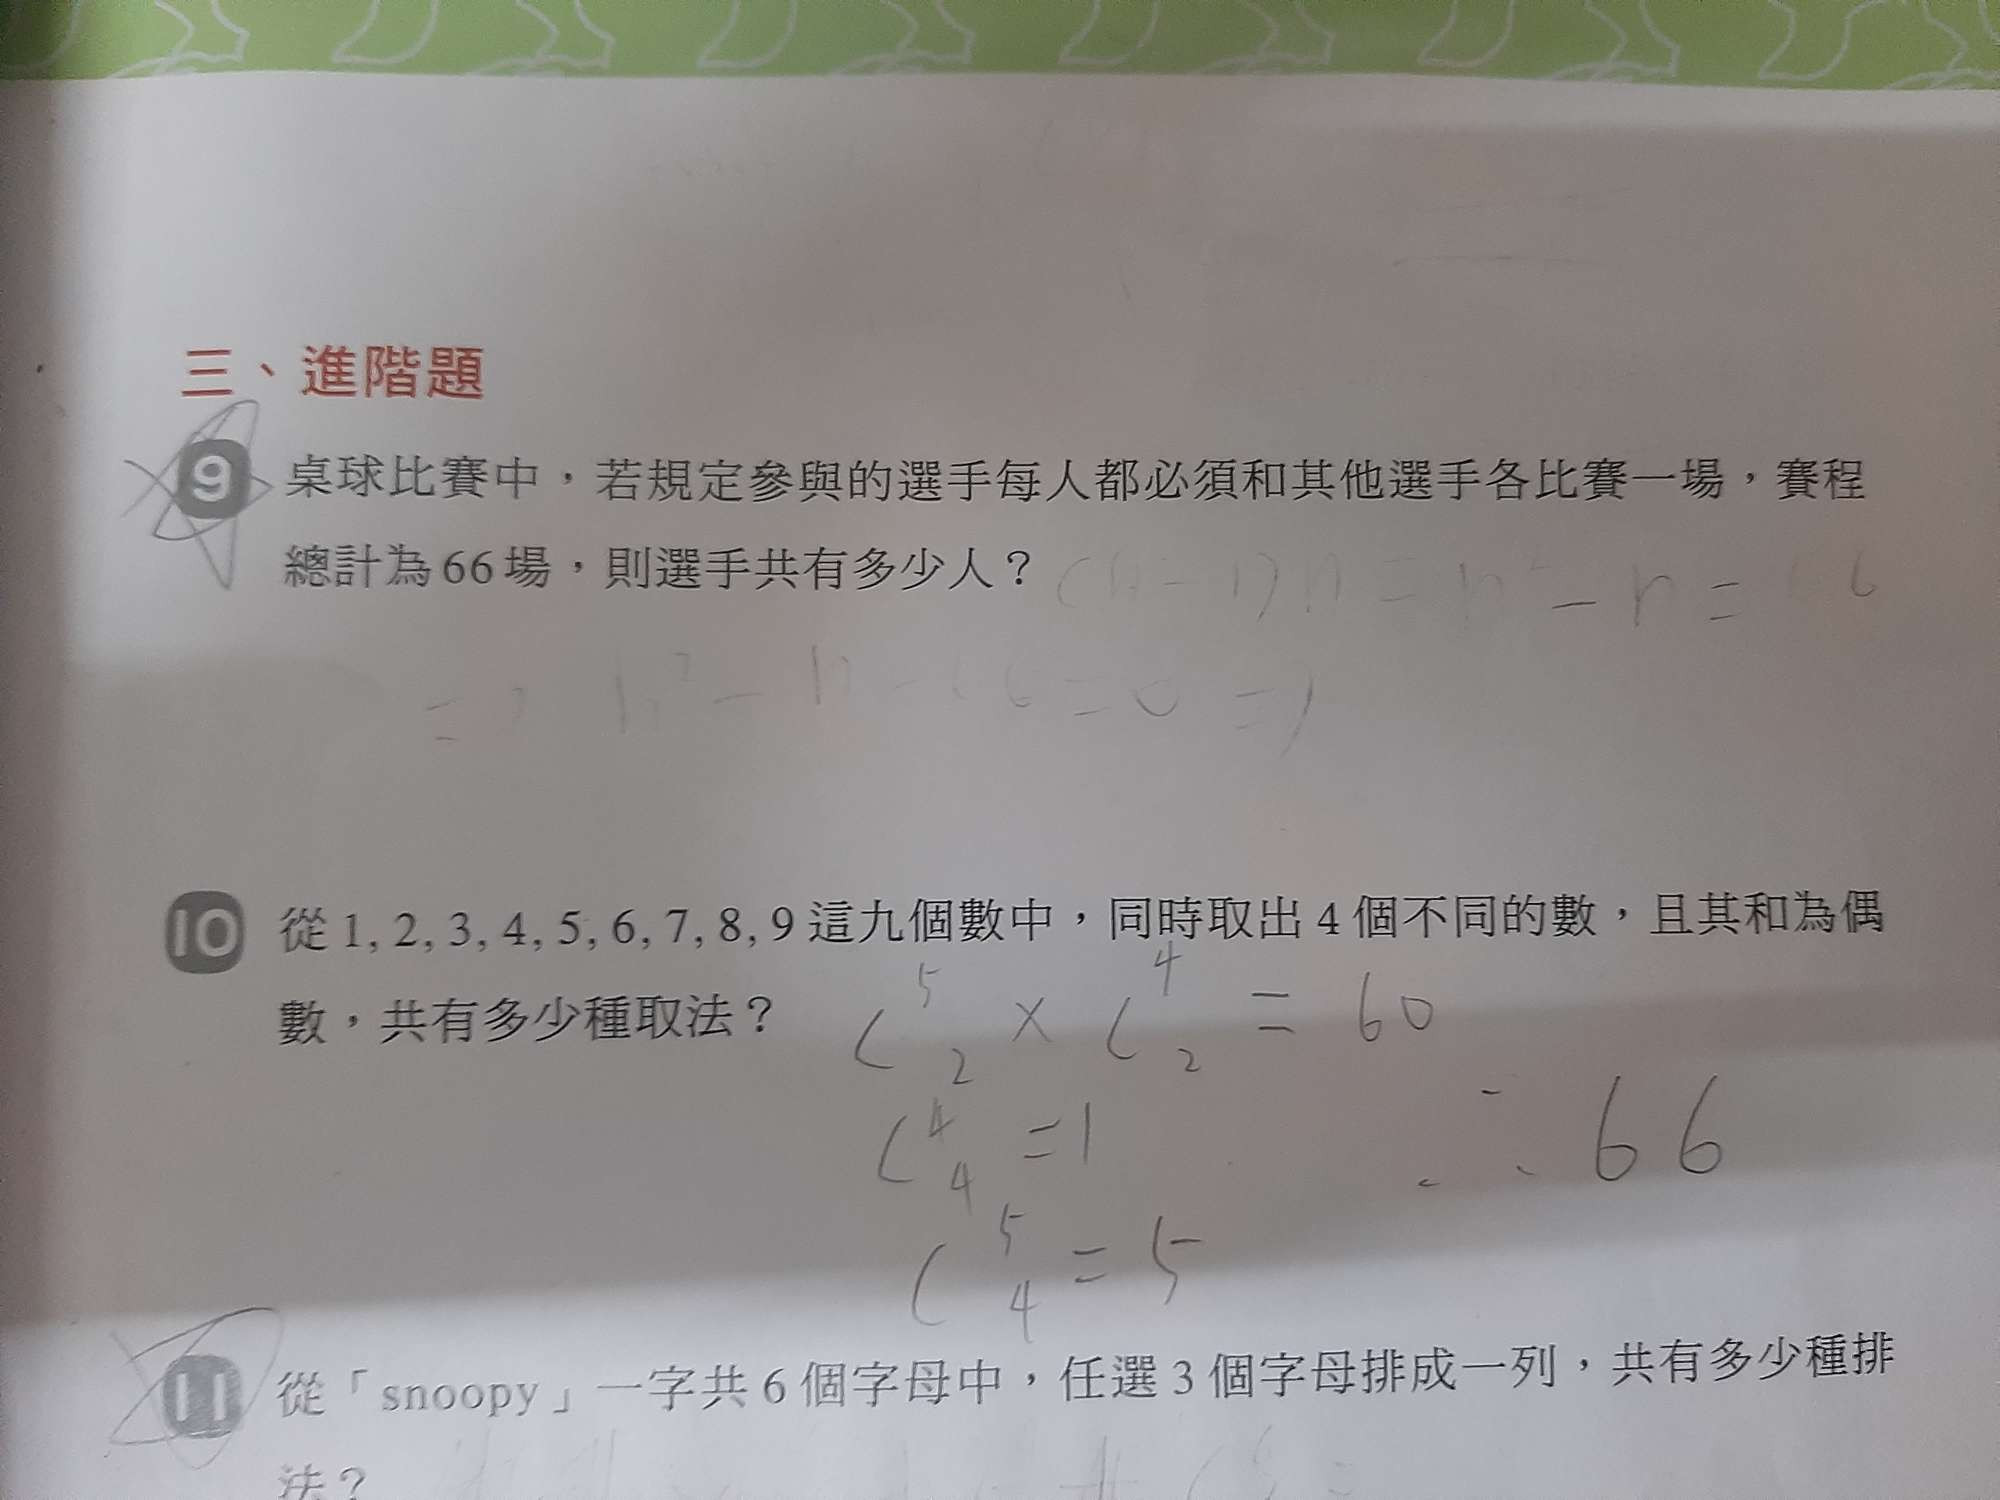 三、進階題
9 桌球比賽中，若規定參與的選手每人都必須和其他選手各比賽一場，賽程
總計為66場，則選手共有多少人？ (n-1)n = n² - n = 66
=> n² - n - 66 = 0 =>
10 從1, 2, 3, 4, 5, 6, 7, 8, 9這九個數中，同時取出4個不同的數，且其和為偶
數，共有多少種取法？ C⁵₂ × C⁴₂ = 60
C⁴₄ = 1 ∴ 66
C⁵₄ = 5
11 從「snoopy」一字共6個字母中，任選3個字母排成一列，共有多少種排
法？